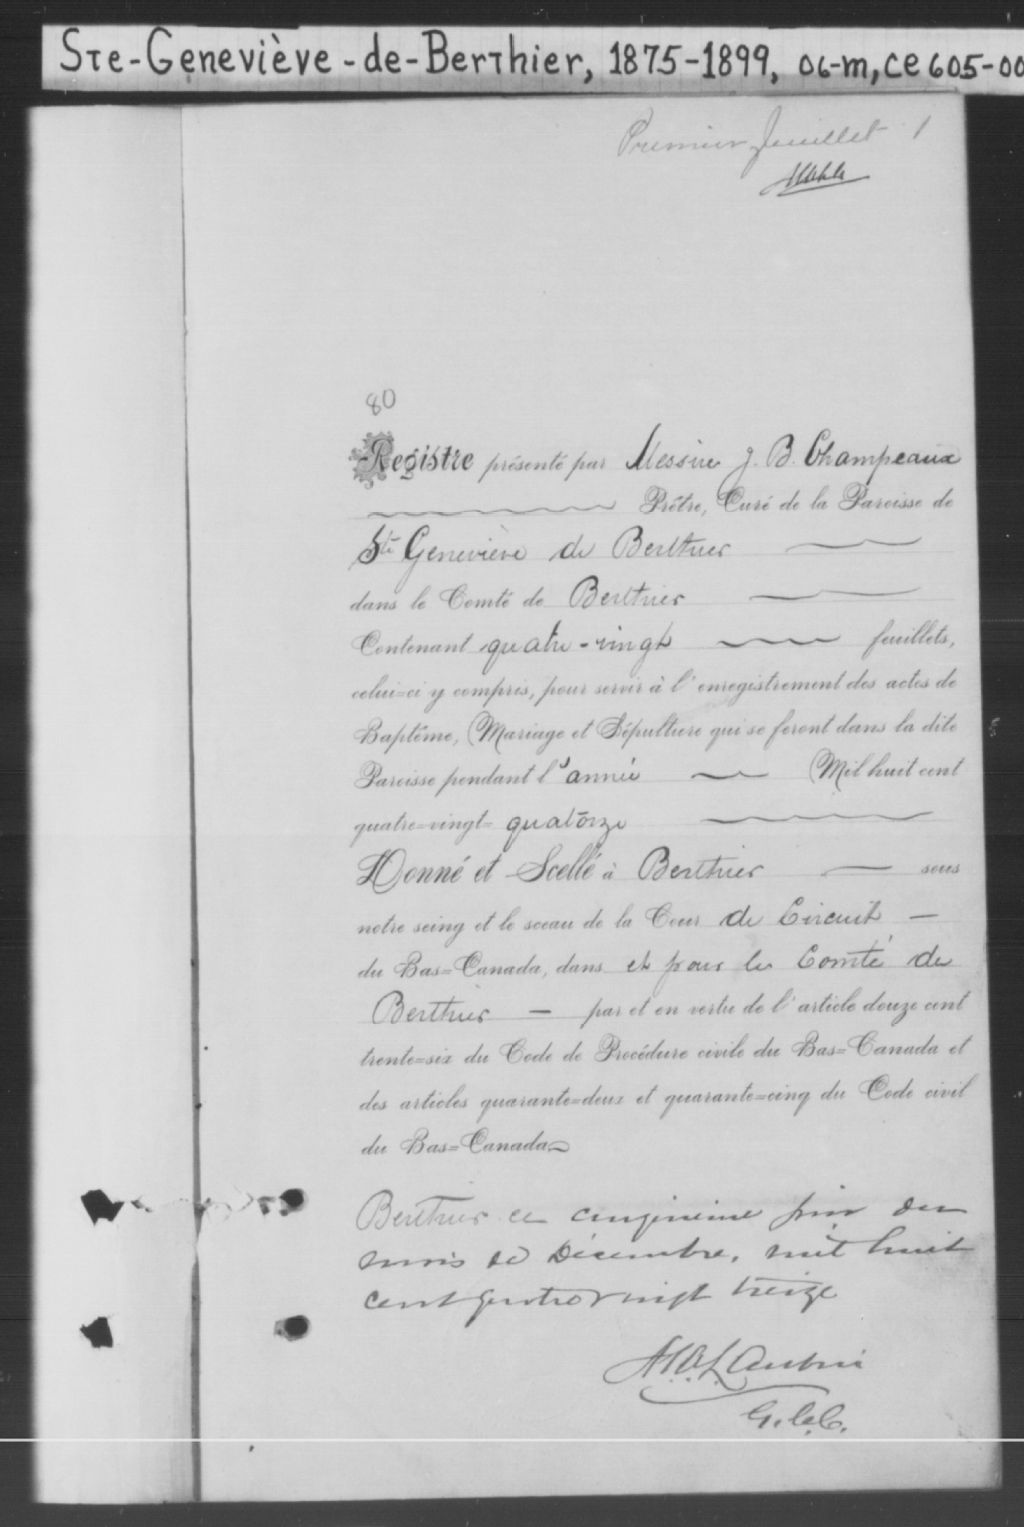 Ste-Geneviève-de-Berthier, 1875-1899, 06-m, CE605-00
Premier feuillet 1
80
Registre présenté par Messire J. B. Champeaux
Prêtre, Curé de la Paroisse de
Ste Geneviève de Berthier
dans le Comté de Berthier
Contenant quatre-vingt feuillets,
celui=ci y compris, pour servir à l'enregistrement des actes de
Baptême, Mariage et Sépulture qui se feront dans la dite
Paroisse pendant l'année Mil huit cent
quatre=vingt= quatorze
Donné et Scellé à Berthier sous
notre seing et le sceau de la Cour de Circuit —
du Bas=Canada, dans et pour le Comté de
Berthier — par et en vertu de l'article douze cent
trente=six du Code de Procédure civile du Bas=Canada et
des articles quarante=deux et quarante=cinq du Code civil
du Bas=Canada
Berthier ce cinquième jour du
mois de Décembre, mil huit
cent quatre vingt treize
G.C.C.